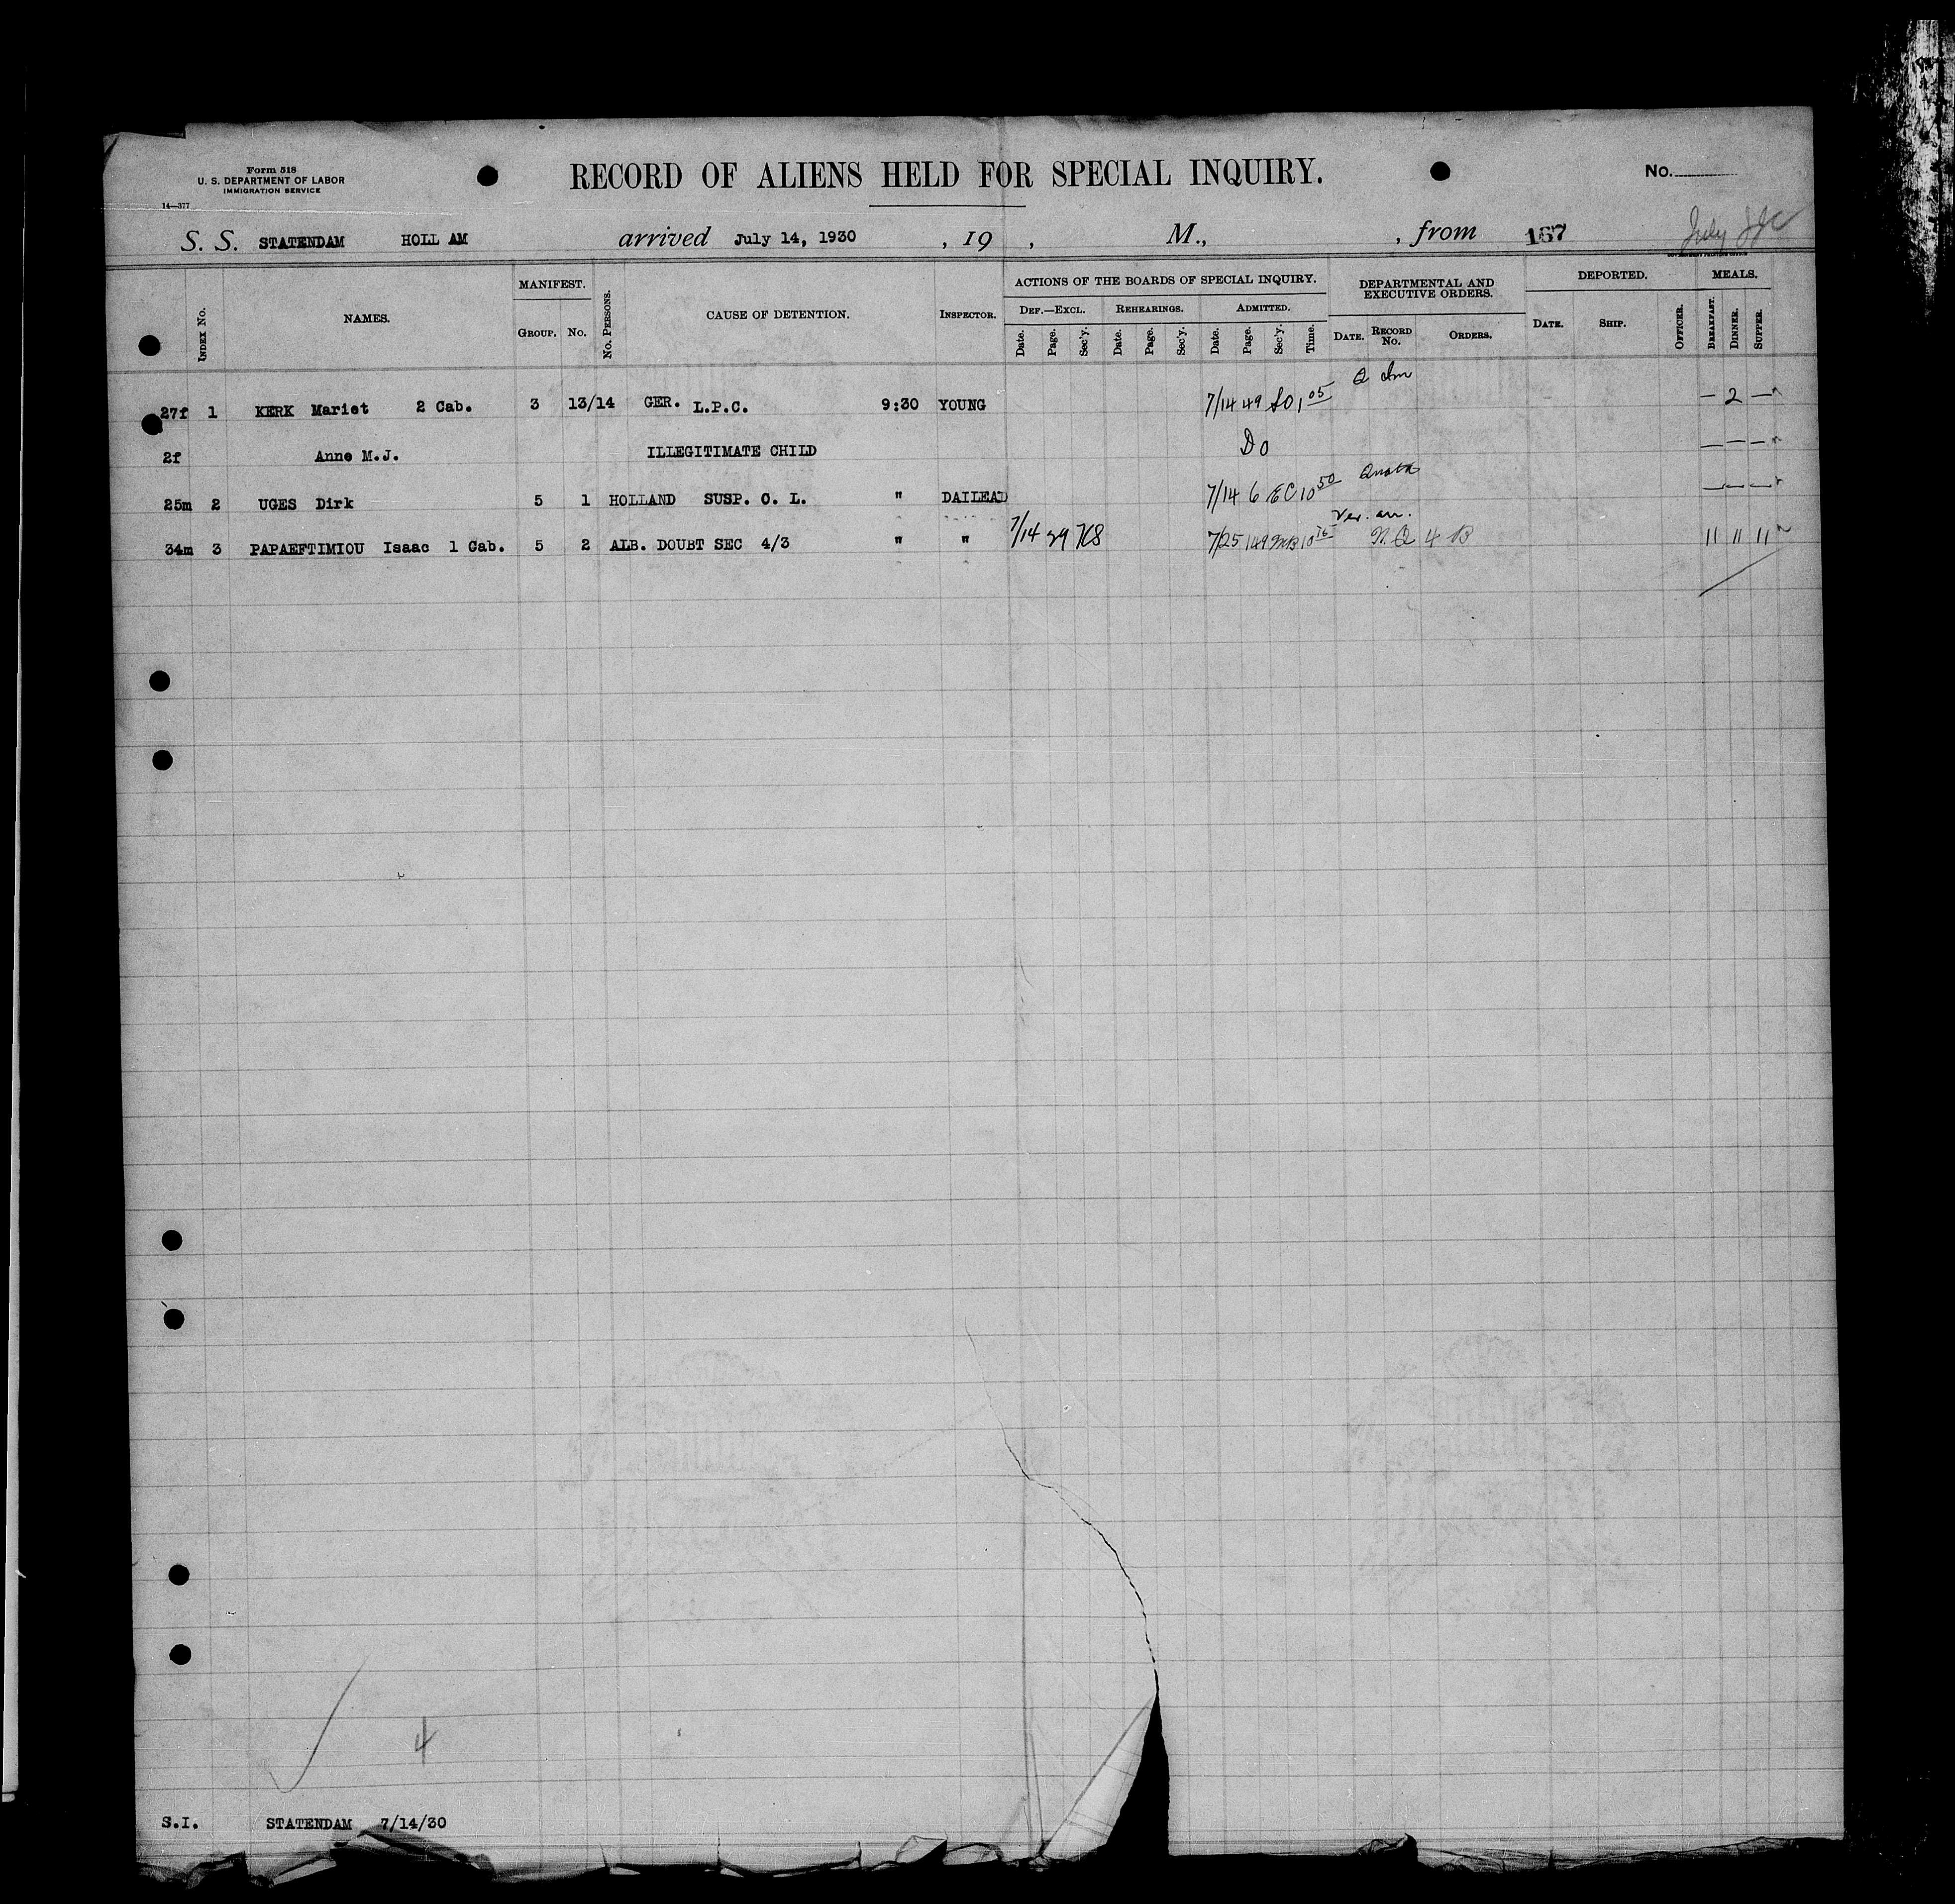 Form 518
U. S. DEPARTMENT OF LABOR
IMMIGRATION SERVICE
14—377
RECORD OF ALIENS HELD FOR SPECIAL INQUIRY.
No.
S. S. STATENDAM HOLL AM arrived July 14, 1930 , 19 , M., , from 167 July
GOVERNMENT PRINTING OFFICE
INDEX No. NAMES. MANIFEST. GROUP. No. No. PERSONS. CAUSE OF DETENTION. INSPECTOR. ACTIONS OF THE BOARDS OF SPECIAL INQUIRY. DEPARTMENTAL AND EXECUTIVE ORDERS. DEPORTED. MEALS.
DEF.—EXCL. REHEARINGS. ADMITTED.
Date. Page. Sec'y. Date. Page. Sec'y. Date. Page. Sec'y. Time. DATE. RECORD No. ORDERS. DATE. SHIP. OFFICER. BREAKFAST. DINNER. SUPPER.
27f 1 KERK Mariet 2 Cab. 3 13/14 GER. L.P.C. 9:30 YOUNG 7/14 49 1 05 — 2 —
2f Anne M.J. ILLEGITIMATE CHILD Do — — —
25m 2 UGES Dirk 5 1 HOLLAND SUSP. C. L. " DAILEAD 7/14 6 EC 10 50 Quota — — —
34m 3 PAPAEFTIMIOU Isaac 1 Cab. 5 2 ALB. DOUBT SEC 4/3 " " 7/14 29 7/25 149 10 Ver. arr. N. Q 4 B 11 11 11
4
S.I. STATENDAM 7/14/30